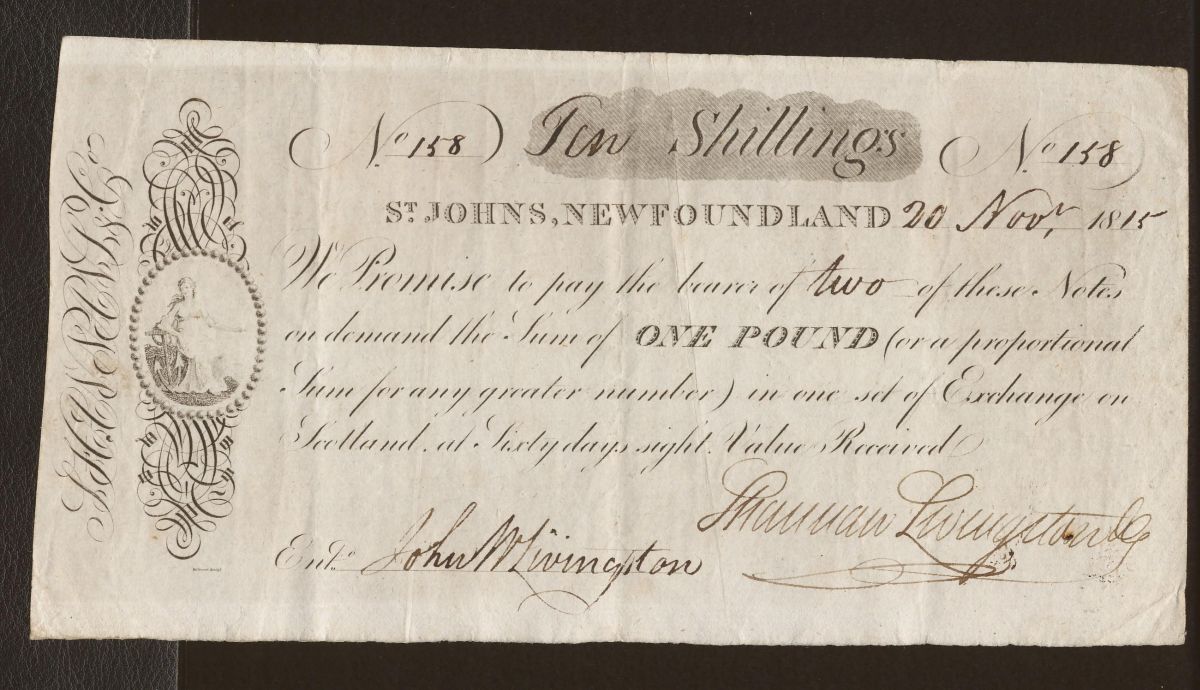 No 158 Ten Shillings No 158
ST. JOHNS, NEWFOUNDLAND 20 Novr, 1815
We Promise to pay the bearer of two of these Notes
on demand the Sum of ONE POUND (or a proportional
Sum for any greater number) in one set of Exchange on
Scotland, at Sixty days sight. Value Received
Shannan Livingston & Co
Entd. John W Livingston